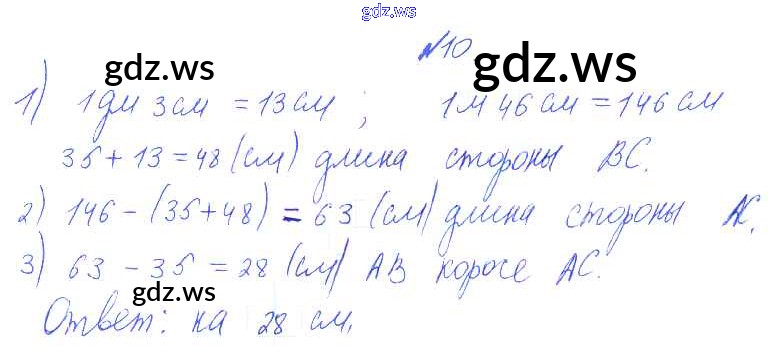 gdz.ws
№10
gdz.ws
gdz.ws
1) 1дм 3см = 13см ; 1м 46см = 146см
35 + 13 = 48 (см) длина стороны BC.
2) 146 - (35+48) = 63 (см) длина стороны AC.
3) 63 - 35 = 28 (см) AB короче AC.
gdz.ws
Ответ: на 28 см.